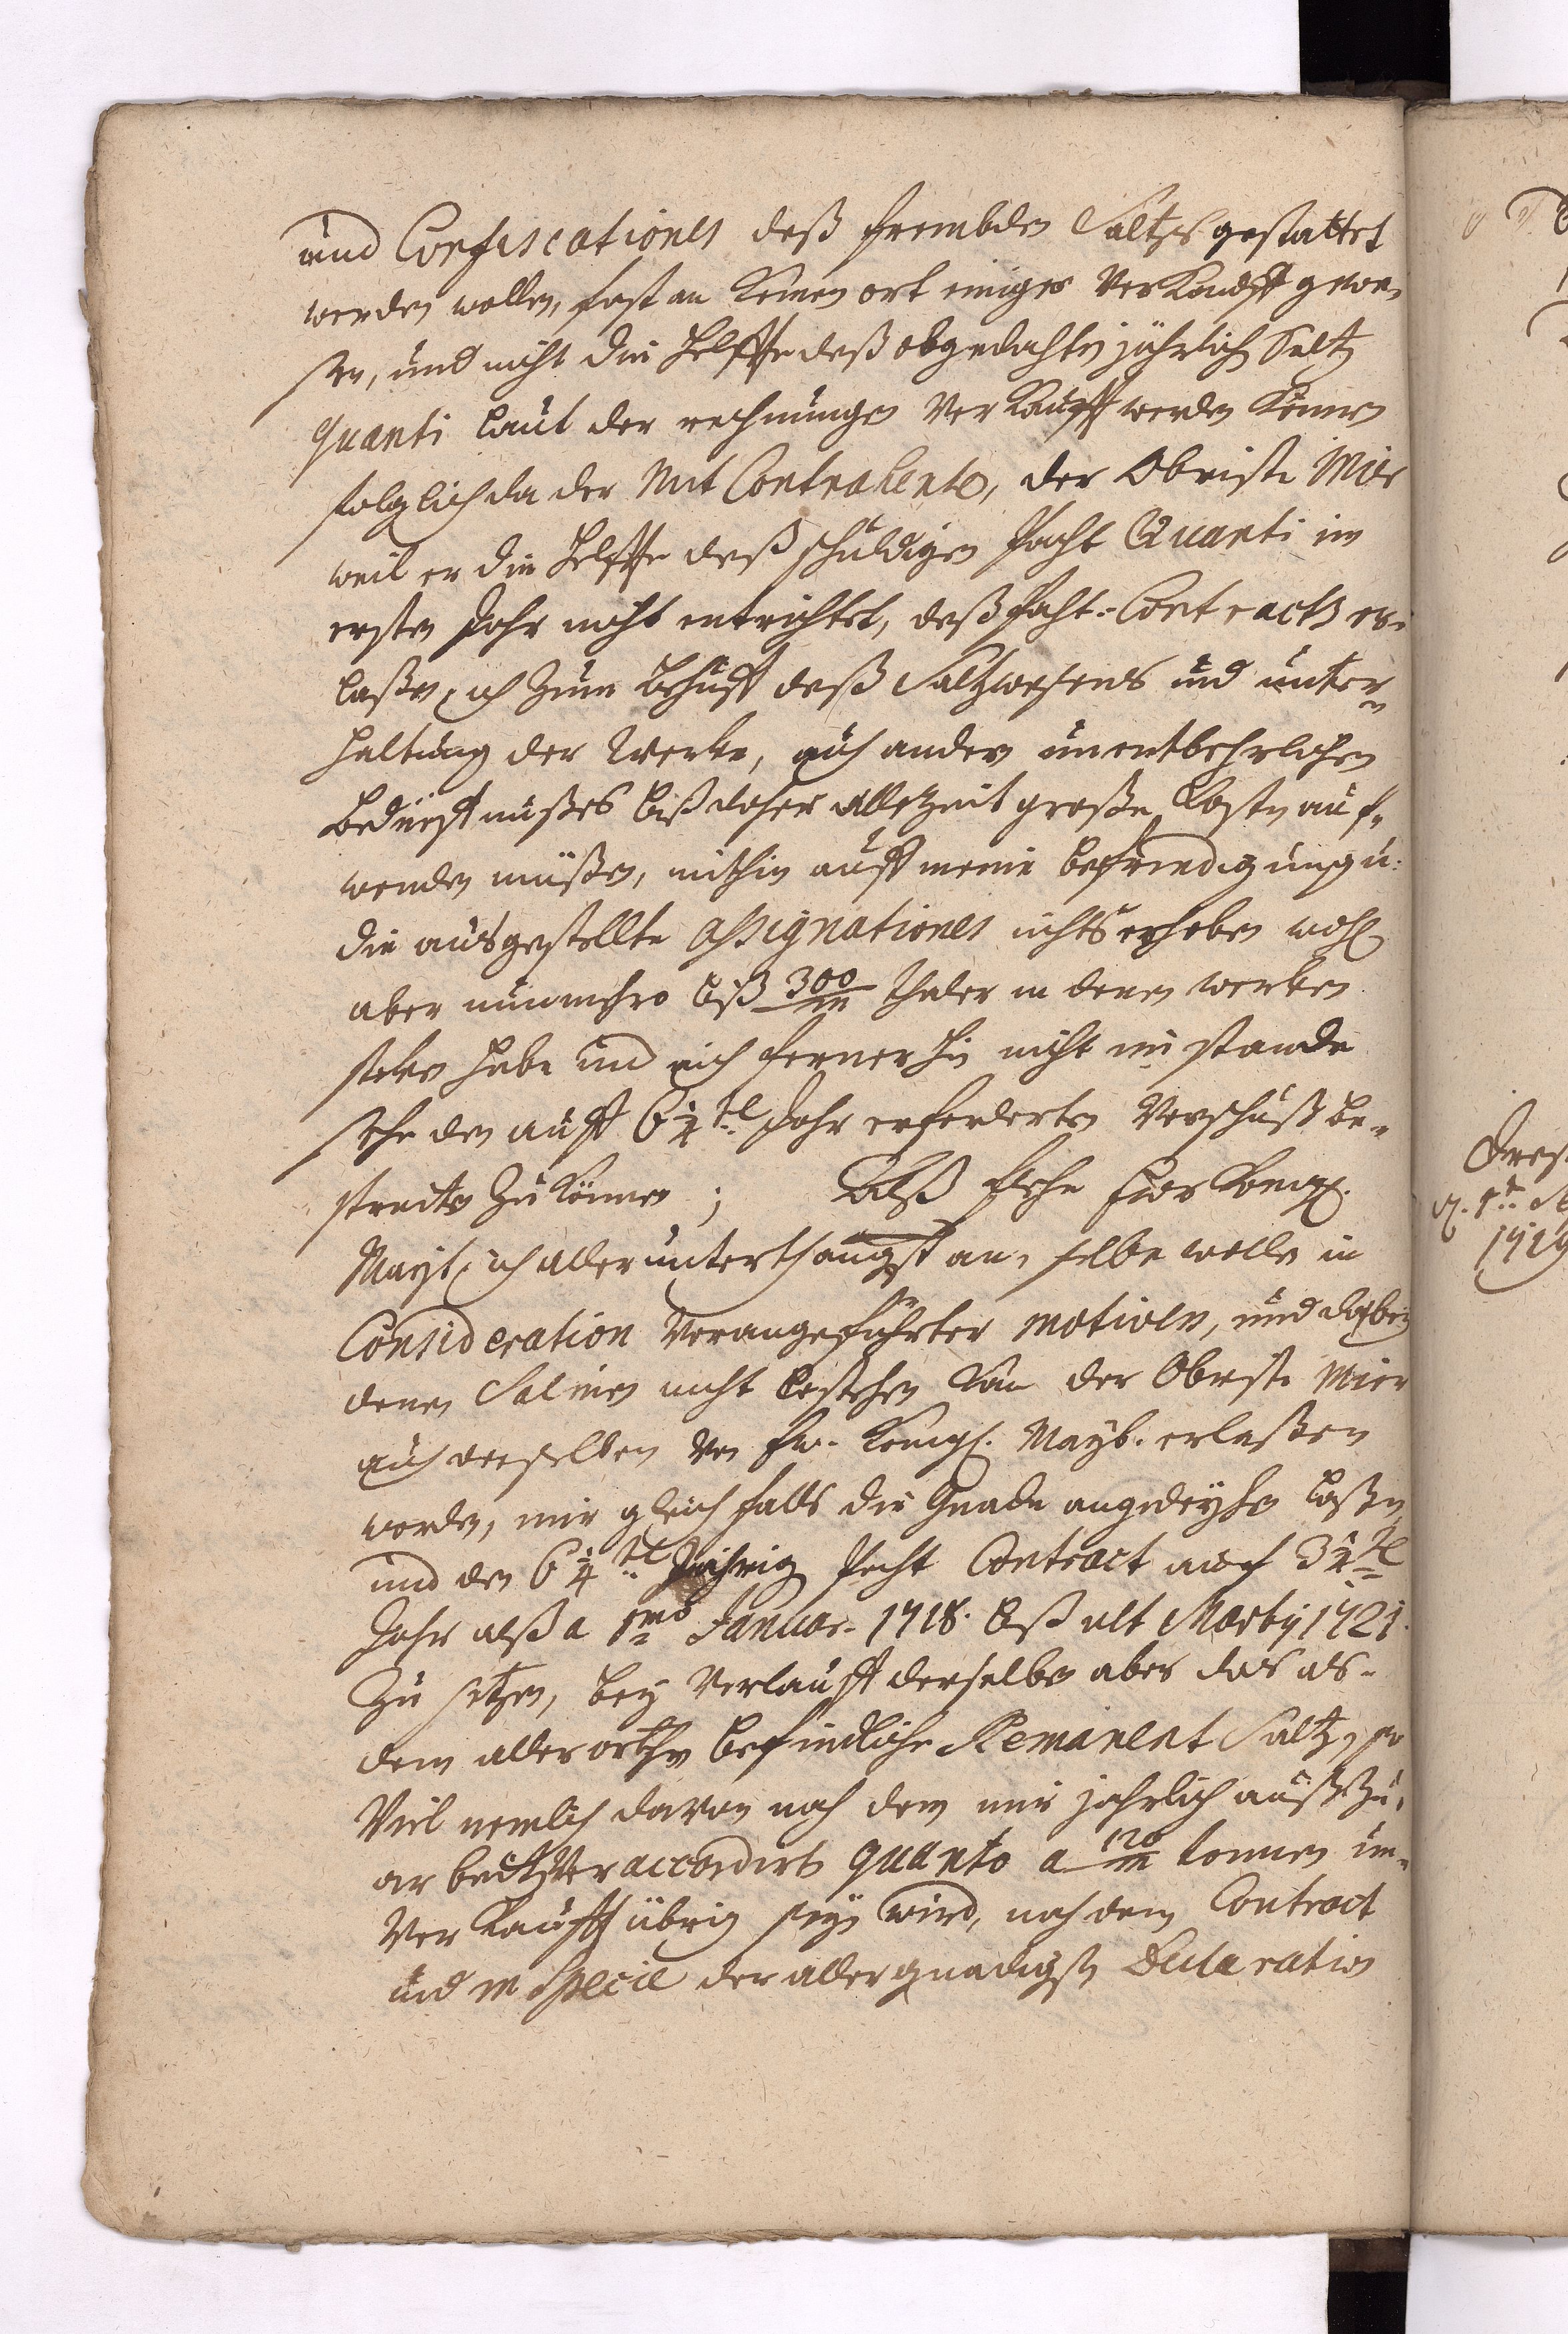 und Confiscationes deß frembden Saltzes gestattet
werden wollen, fast an Keinen ort einiger Verkaufft gewe-
sen, und nicht die Helffte deß obgedachten jährlich Saltz
quanti laut der rechnungen Verkaufft werden Können
folglich da der Mit Contrahente, der Obriste Mier
weil er die Helffte deß schuldigen Pacht Quanti im
ersten Jahr nicht entrichtet, deß Pacht-Contracts er-
laßen, ich zum Behuff deß Saltzwesens und unter-
haltung der Wercke, auch andern unentbehrlichen
Bedürffnußes biß daher allezeit große Costen auf-
wenden müßen, mithin auff meine befriedigung u:
die ausgestellte assignationes nichts erheben
aber nunmehro biß 300/m Thaler in denen wercken
stecken habe und mich fernerhin nicht im stande
sehe den auff 6 1/4tel Jahr erforderten Vorschuß be-
streiten zu können; Alß flehe Euer Königl.
Mayt. ich allerunterthänigst an, selbe wollen in
Consideration Vorangeführter motiven, und daß bey
denen Salinen nicht bestehen Kan der Obriste Mier
auch deeßelben Von Ew. Königl. Mayt. erlaßen
worden, mir gleichfalls die Gnade angedeyhen laßen,
und den 6 1/4tel Jährig Pacht Contract auf 3 1/4tel
Jahr alß a 1mo Januar. 1718. biß ult Martij 1721.
zu setzen, bey Verlauff derselben aber das als-
dem aller orthen befindliche Remanent Saltz, so
Viel nemlich davon nach dem mir jährlich auß zu-
arbeiten accordirte quanto a 120/m tonnen un-
Verkaufft übrig seyn wird, nach dem Contract
und in Specie der allergnädigsten Declaration
Dres
d. 1t.
1719